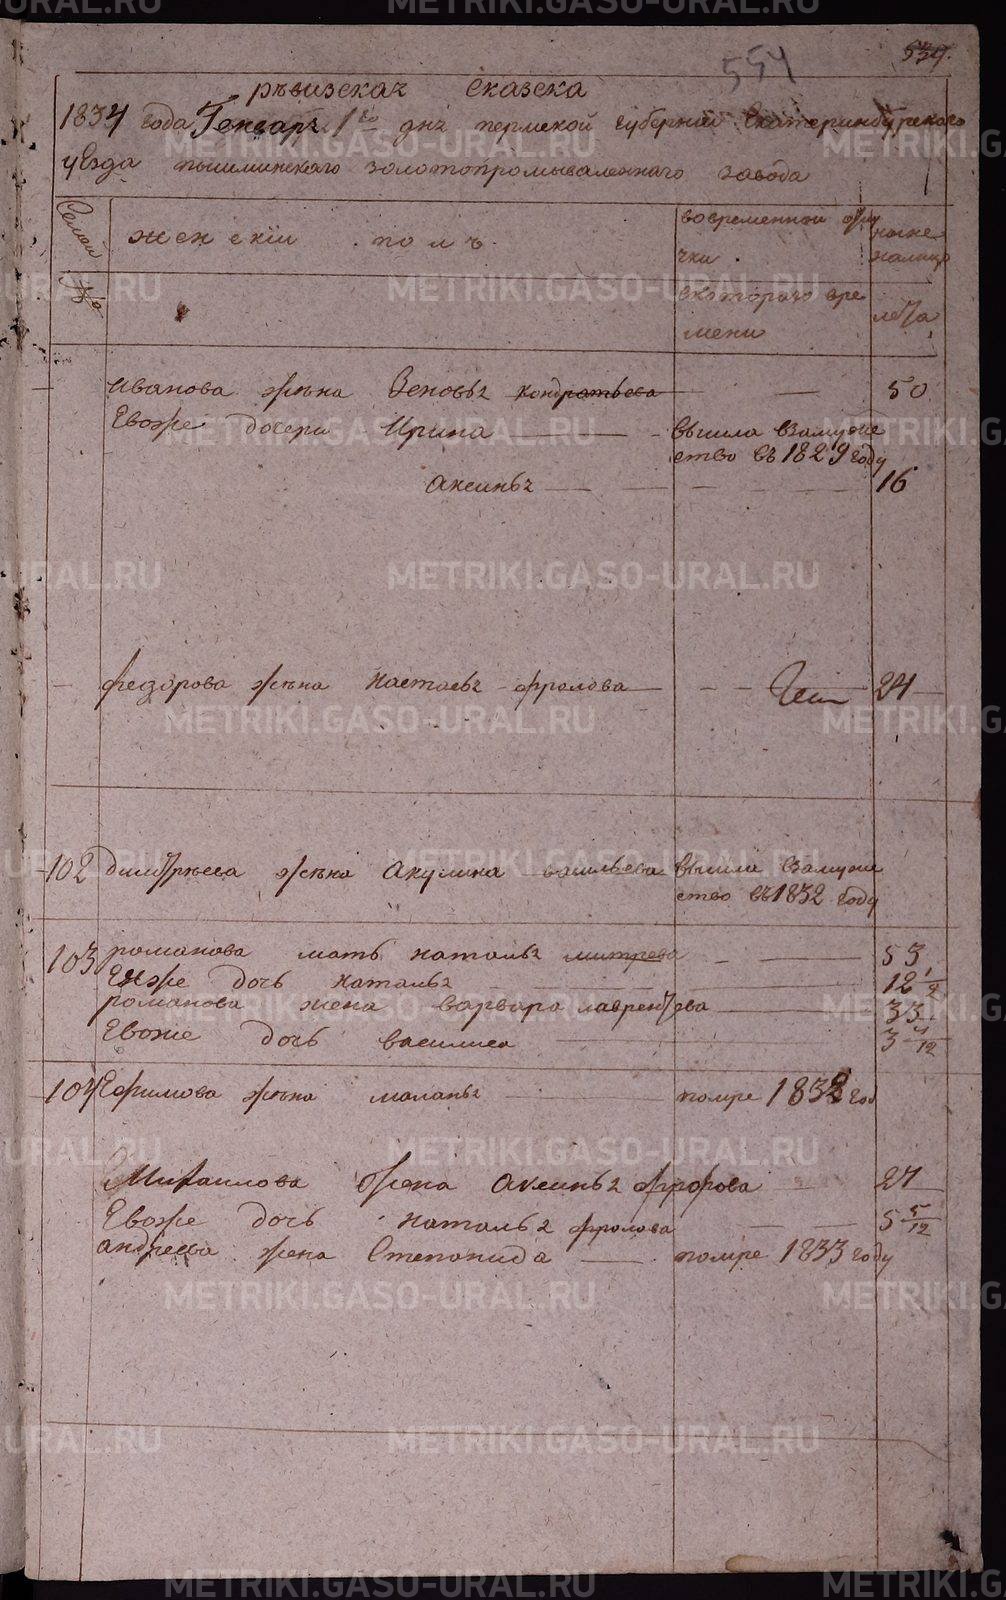 554 534.
ръвизская сказска
1834 года Генваря 1го дня пермской губернии Екатеринбургского
уезда пышминскаго золотопромываленнаго завода
Семьи №
женскии полъ.
вовременной отлу
чки.
скоторого вре
мени
ныне
налицо
лета
иванова жъна Зеновья кондратьева — — 50
Евоже дочери Ирина — вышла взамуже
ство въ 1829 году
аксинья — — — — 16
федорова жъна настасья фролова — — 24
102 дмитрѣева жъна Акулина васильева вышла взамуже
ство въ 1832 году
103 романова мать наталья митрева — — 53
Енже дочь наталья 12 1/2
романова жена варвара лаврентѣва — 33
Евоже дочь василиса — 3 4/12
104 Ефимова жъна маланья — помре 1832 год
Михаилова жена аксинья — 27
Евоже дочь наталья фролова — — 5 5/12
андреева жена Степонида — помре 1833 году
METRIKI.GASO-URAL.RU